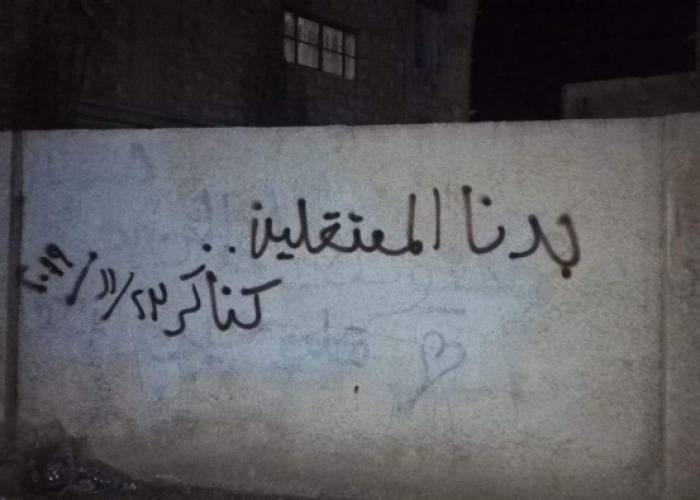 بدنا المعتقلين..
كناكر ٢٣/١١/٢٠١٩